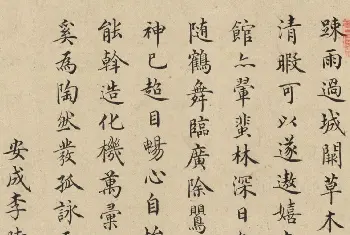 踈雨過城闉草木
清暇可以遂遨嬉
館亦翬蜚林深日
随鶴舞臨廣除鷖
神已超目暢心自怡
能斡造化機萬彙
奚為陶然發孤詠
安成李